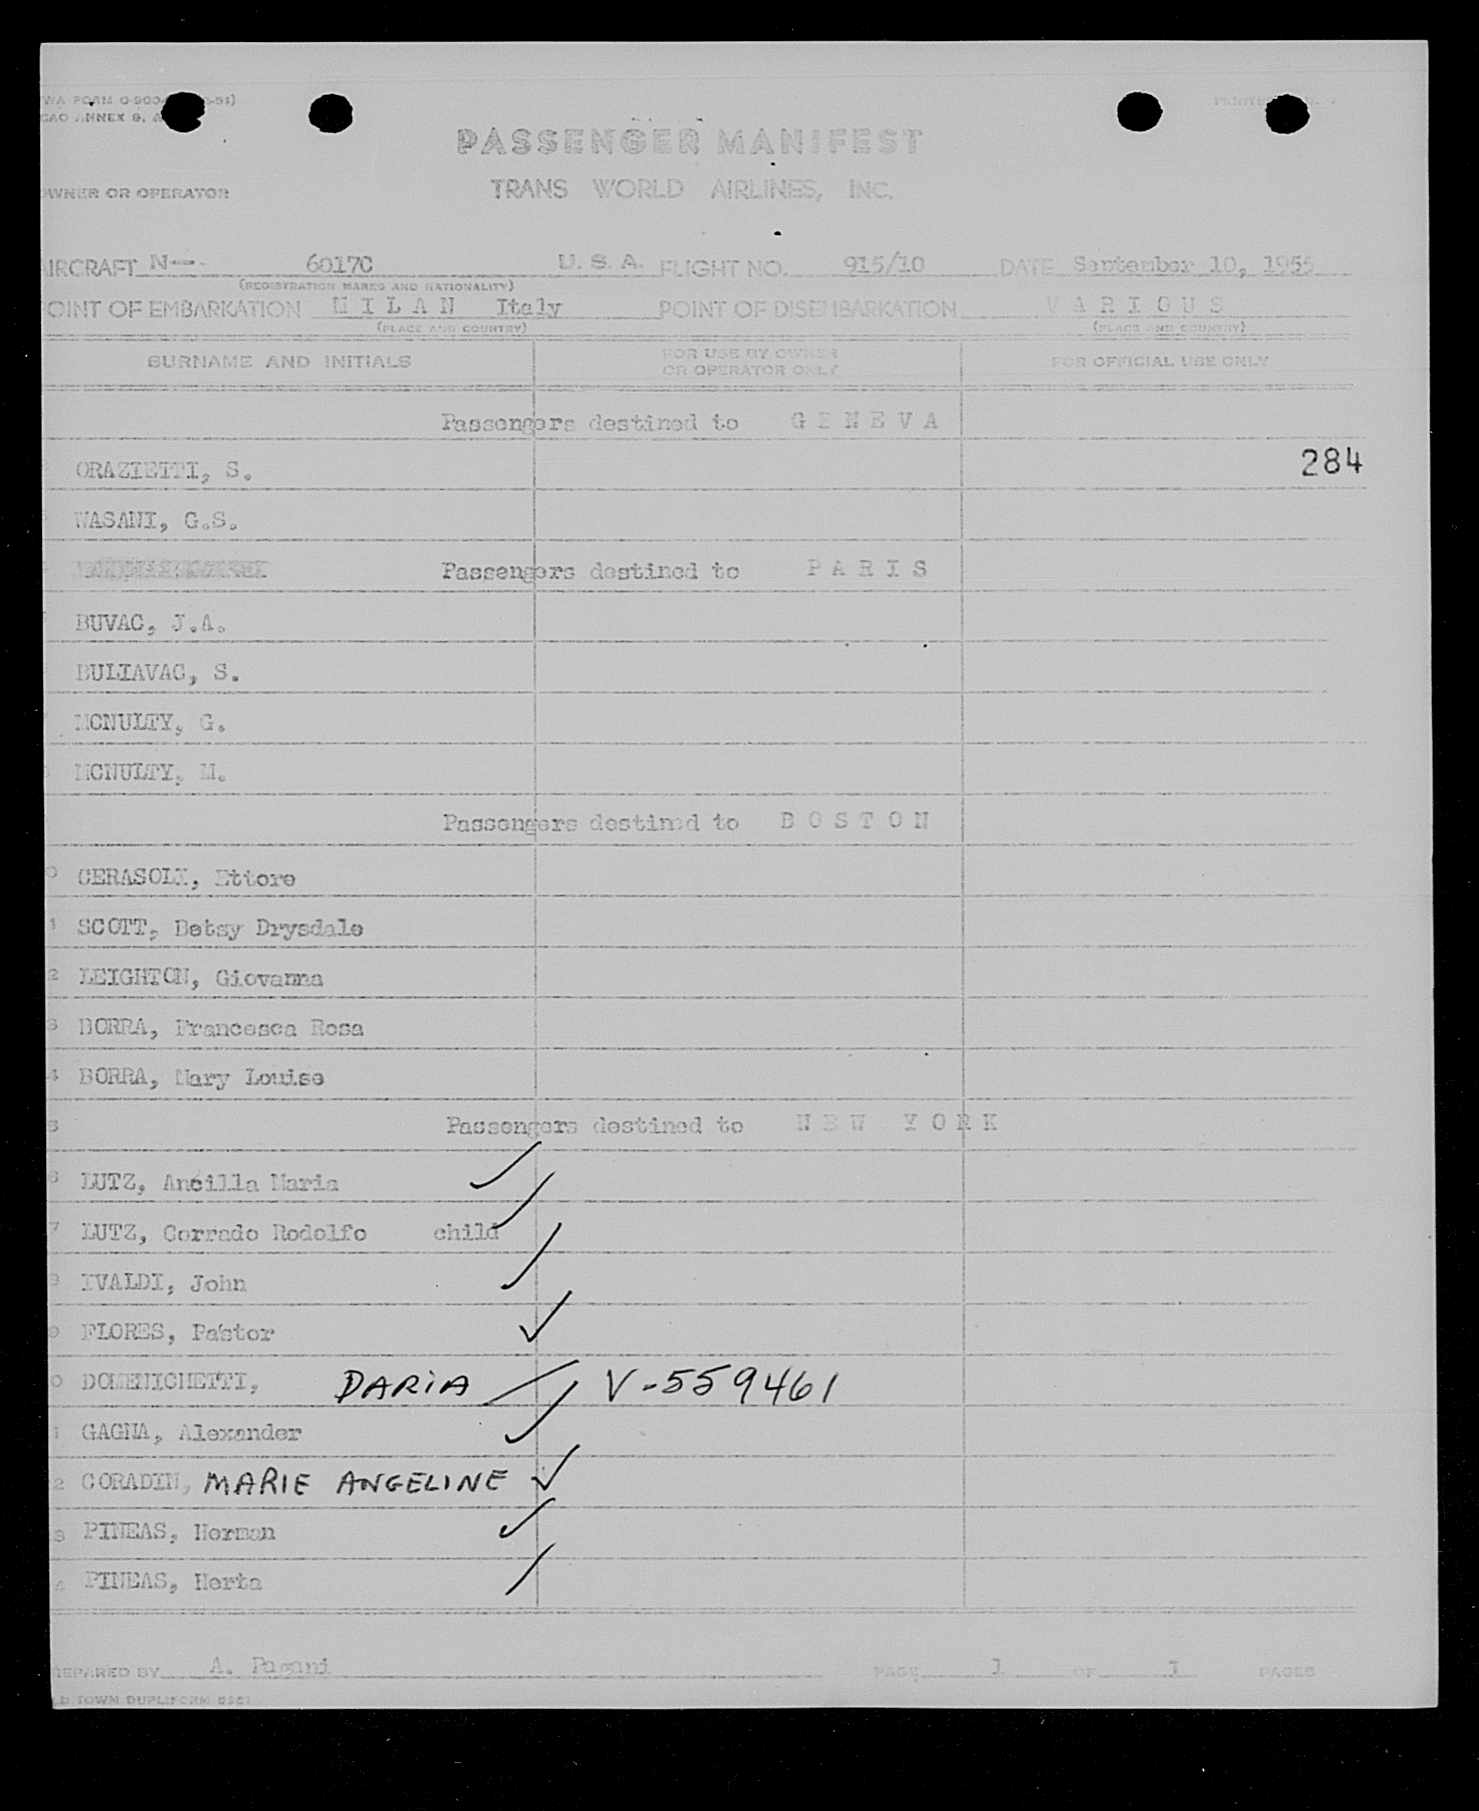 PASSENGER MANIFEST
OWNER OR OPERATOR TRANS WORLD AIRLINES, INC.
AIRCRAFT N--- 6017C U. S. A. FLIGHT NO. 915/10 DATE September 10, 1955
(REGISTRATION MARKS AND NATIONALITY)
POINT OF EMBARKATION M I L A N Italy POINT OF DISEMBARKATION V A R I O U S
(PLACE AND COUNTRY) (PLACE AND COUNTRY)
SURNAME AND INITIALS FOR USE BY OWNER OR OPERATOR ONLY FOR OFFICIAL USE ONLY
Passengers destined to G E N E V A
ORAZIETTI, S. 284
WASANI, G.S.
Passengers destined to P A R I S
BUVAC, J.A.
BULIAVAC, S.
MCNULTY, G.
MCNULTY, M.
Passengers destined to B O S T O N
CERASOLI, Ettore
1 SCOTT, Betsy Drysdale
2 LEIGHTON, Giovanna
3 BORRA, Francesca Rosa
4 BORRA, Mary Louise
Passengers destined to N E W Y O R K
6 LUTZ, Ancilla Maria
7 LUTZ, Corrado Rodolfo child
IVALDI, John
FLORES, Pastor
0 DOMENICHETTI, DARIA V-559461
1 GAGNA, Alexander
2 CORADIN, MARIE ANGELINE
3 PINEAS, Norman
4 PINEAS, Herta
PREPARED BY A. Pagani PAGE 1 OF 1 PAGES